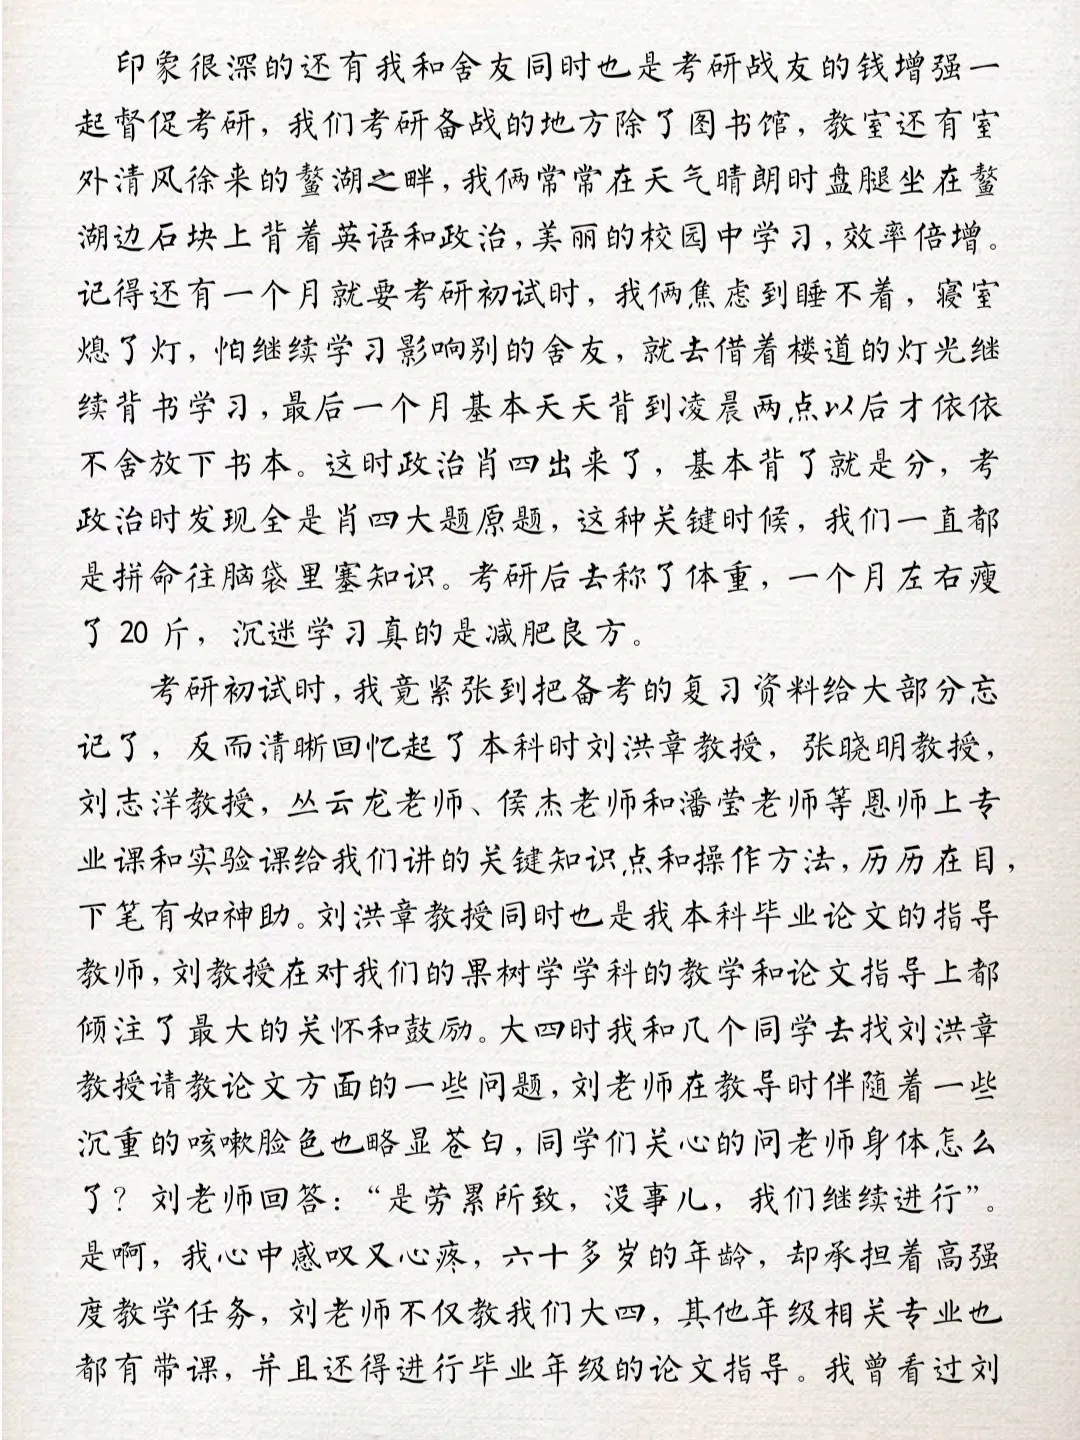 印象很深的还有我和舍友同时也是考研战友的钱增强一
起督促考研，我们考研备战的地方除了图书馆，教室还有室
外清风徐来的鳌湖之畔，我俩常常在天气晴朗时盘腿坐在鳌
湖边石块上背着英语和政治，美丽的校园中学习，效率倍增。
记得还有一个月就要考研初试时，我俩焦虑到睡不着，寝室
熄了灯，怕继续学习影响别的舍友，就去借着楼道的灯光继
续背书学习，最后一个月基本天天背到凌晨两点以后才依依
不舍放下书本。这时政治肖四出来了，基本背了就是分，考
政治时发现全是肖四大题原题，这种关键时候，我们一直都
是拼命往脑袋里塞知识。考研后去称了体重，一个月左右瘦
了 20 斤，沉迷学习真的是减肥良方。
考研初试时，我竟紧张到把备考的复习资料给大部分忘
记了，反而清晰回忆起了本科时刘洪章教授，张晓明教授，
刘志洋教授，丛云龙老师、侯杰老师和潘莹老师等恩师上专
业课和实验课给我们讲的关键知识点和操作方法，历历在目，
下笔有如神助。刘洪章教授同时也是我本科毕业论文的指导
教师，刘教授在对我们的果树学学科的教学和论文指导上都
倾注了最大的关怀和鼓励。大四时我和几个同学去找刘洪章
教授请教论文方面的一些问题，刘老师在教导时伴随着一些
沉重的咳嗽脸色也略显苍白，同学们关心的问老师身体怎么
了？刘老师回答：“是劳累所致，没事儿，我们继续进行”。
是啊，我心中感叹又心疼，六十多岁的年龄，却承担着高强
度教学任务，刘老师不仅教我们大四，其他年级相关专业也
都有带课，并且还得进行毕业年级的论文指导。我曾看过刘